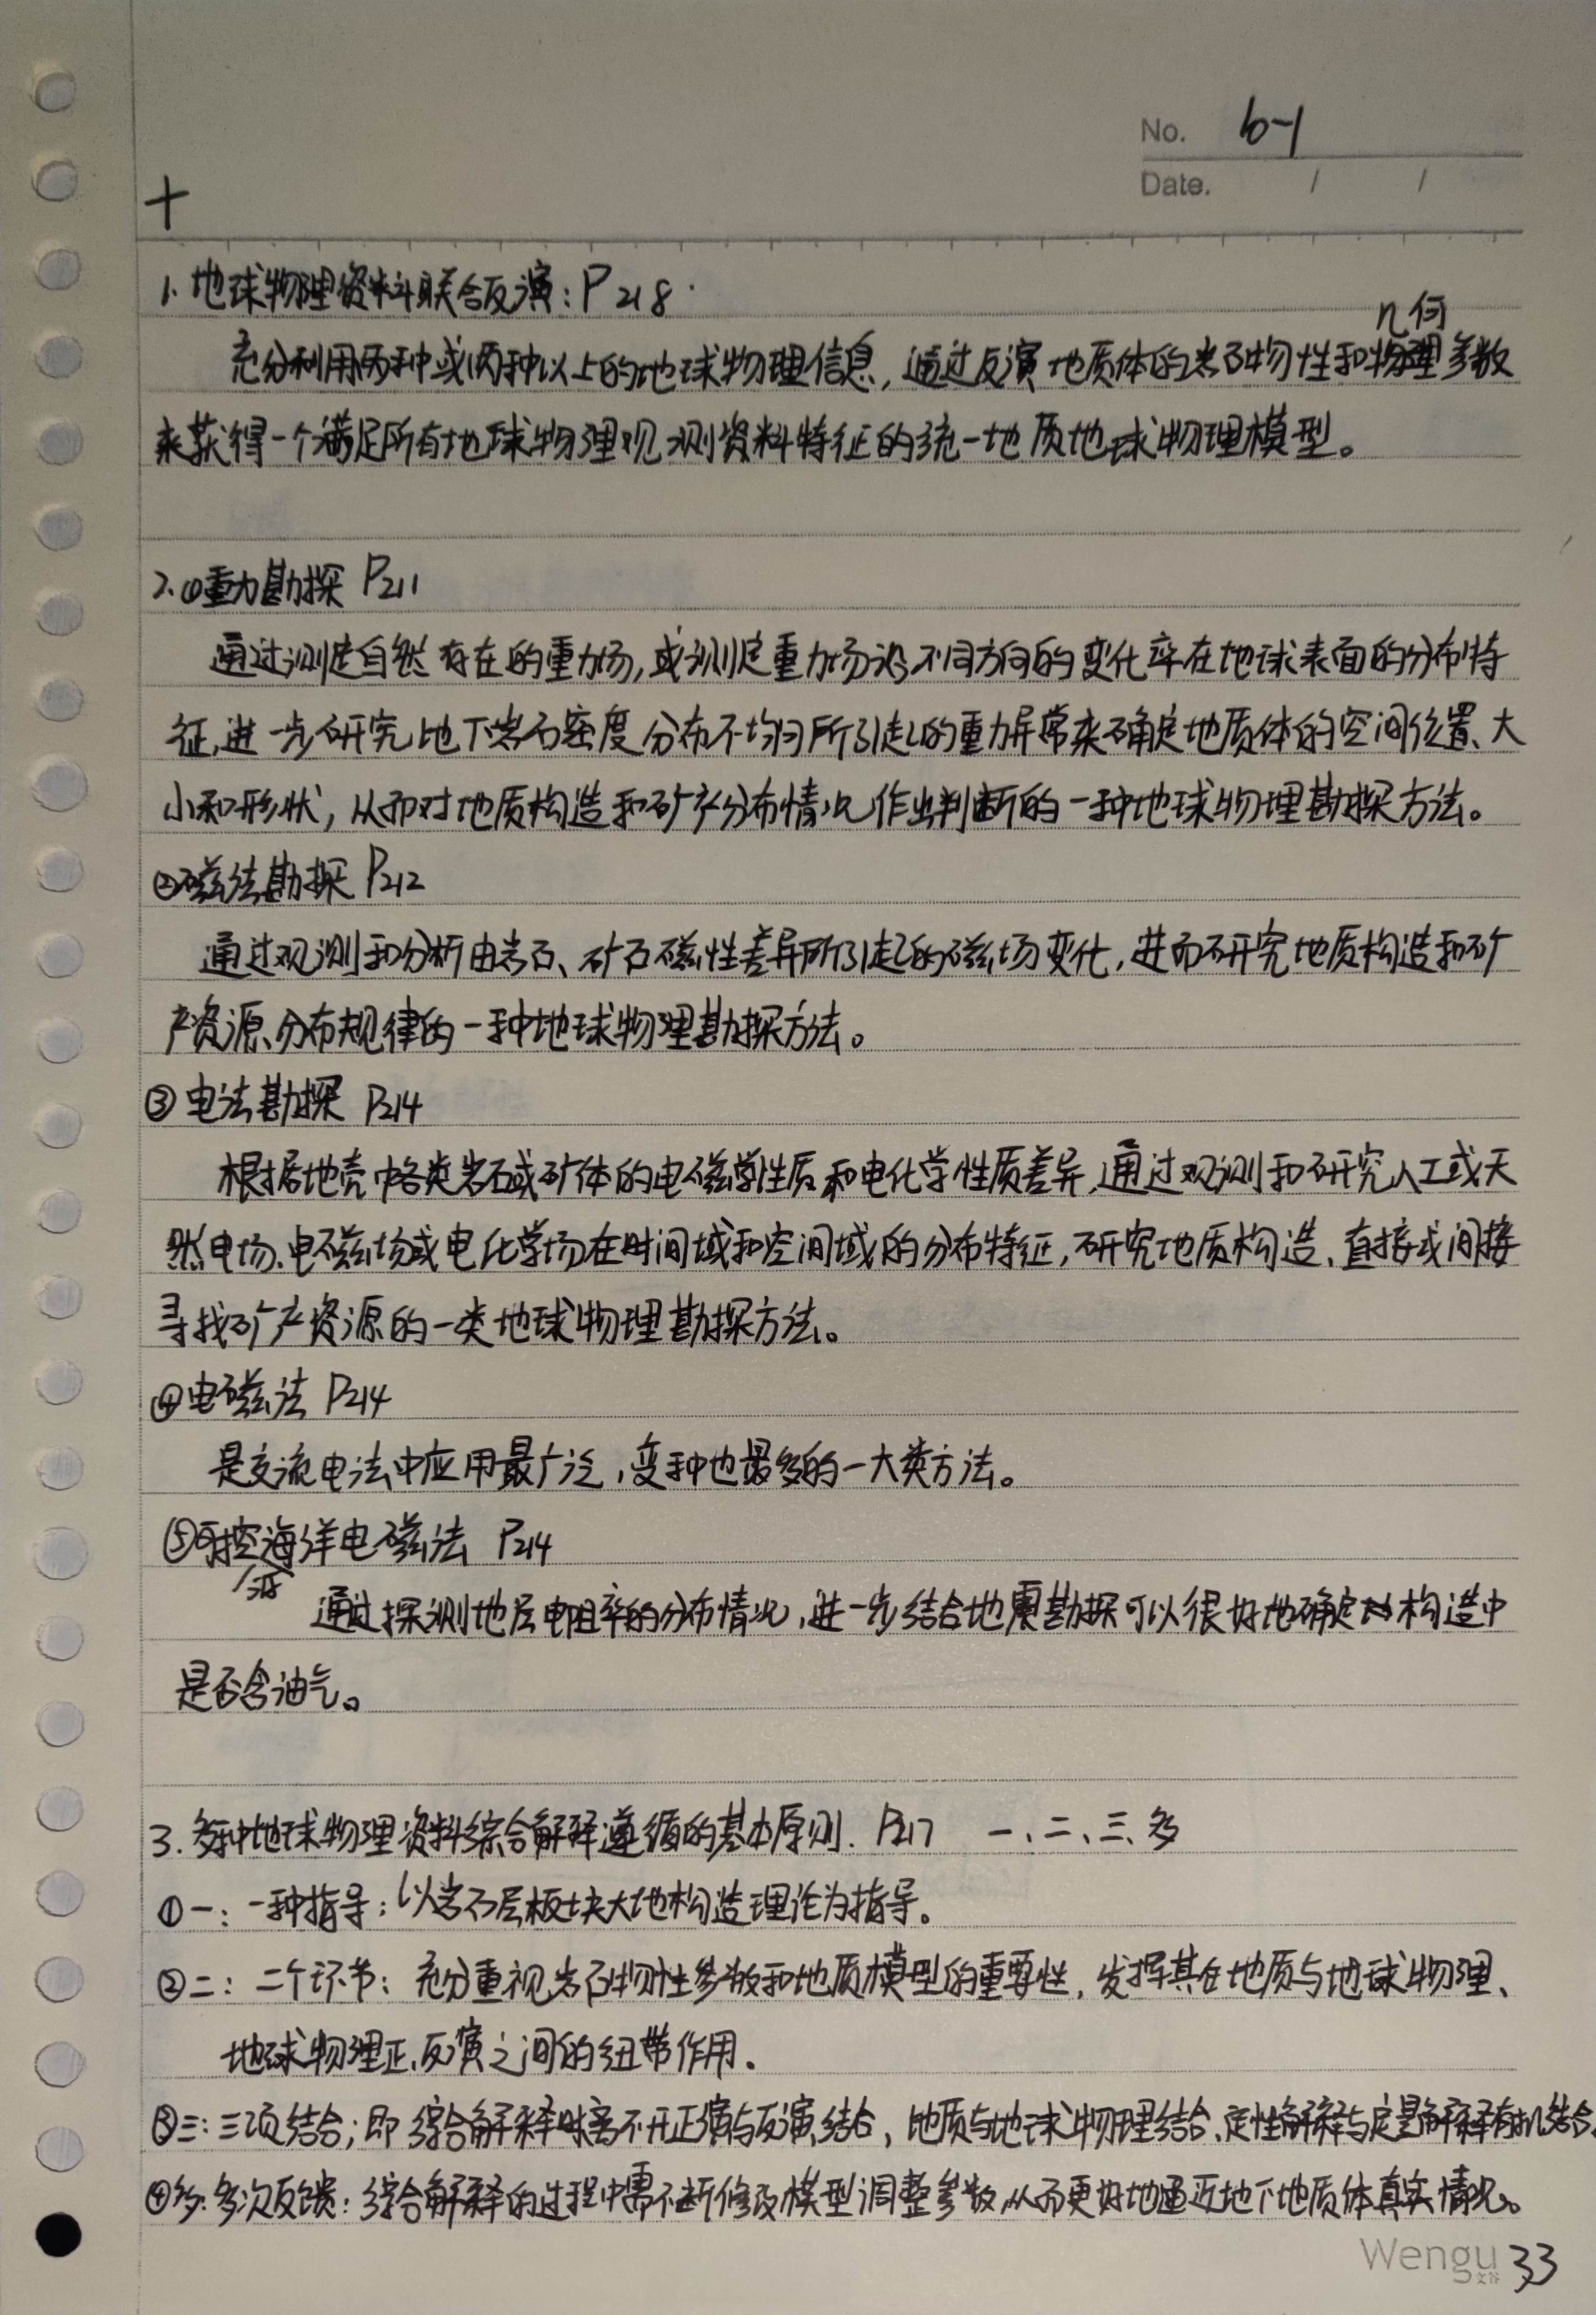 No. 10-1
Date. / /
十
1. 地球物理资料联合反演：P218.
几何
充分利用两种或两种以上的地球物理信息，通过反演地质体的岩石物性和物理参数
来获得一个满足所有地球物理观测资料特征的统一地质地球物理模型。
2.①重力勘探 P211
通过测定自然存在的重力场，或测定重力场沿不同方向的变化率在地球表面的分布特
征，进一步研究地下岩石密度分布不均匀所引起的重力异常来确定地质体的空间位置、大
小和形状，从而对地质构造和矿产分布情况作出判断的一种地球物理勘探方法。
②磁法勘探 P212
通过观测和分析由岩石、矿石磁性差异所引起的磁场变化，进而研究地质构造和矿
产资源分布规律的一种地球物理勘探方法。
③电法勘探 P214
根据地壳中各类岩石或矿体的电磁学性质和电化学性质差异，通过观测和研究人工或天
然电场、电磁场或电化学场在时间域和空间域的分布特征，研究地质构造、直接或间接
寻找矿产资源的一类地球物理勘探方法。
④电磁法 P214
是交流电法中应用最广泛，变种也最多的一大类方法。
⑤可控海洋电磁法 P214
源
通过探测地层电阻率的分布情况，进一步结合地震勘探可以很好地确定构造中
是否含油气。
3. 多种地球物理资料综合解释遵循的基本原则. P217 一、二、三、多
①一：一种指导：以岩石层板块大地构造理论为指导。
②二：二个环节：充分重视岩石物性参数和地质模型的重要性，发挥其在地质与地球物理、
地球物理正、反演之间的纽带作用.
③三：三项结合；即综合解释时离不开正演与反演结合，地质与地球物理结合、定性解释与定量解释有机结合.
④多：多次反馈：综合解释的过程中需不断修改模型调整参数，从而更好地逼近地下地质体真实情况。
Wengu 文谷 33